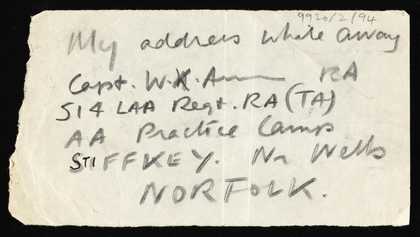 9920/2/94
My address while away
Capt. W.K. RA
514 LAA Regt. RA (TA)
AA Practice Camp
STIFFKEY. Nr Wells
NORFOLK.